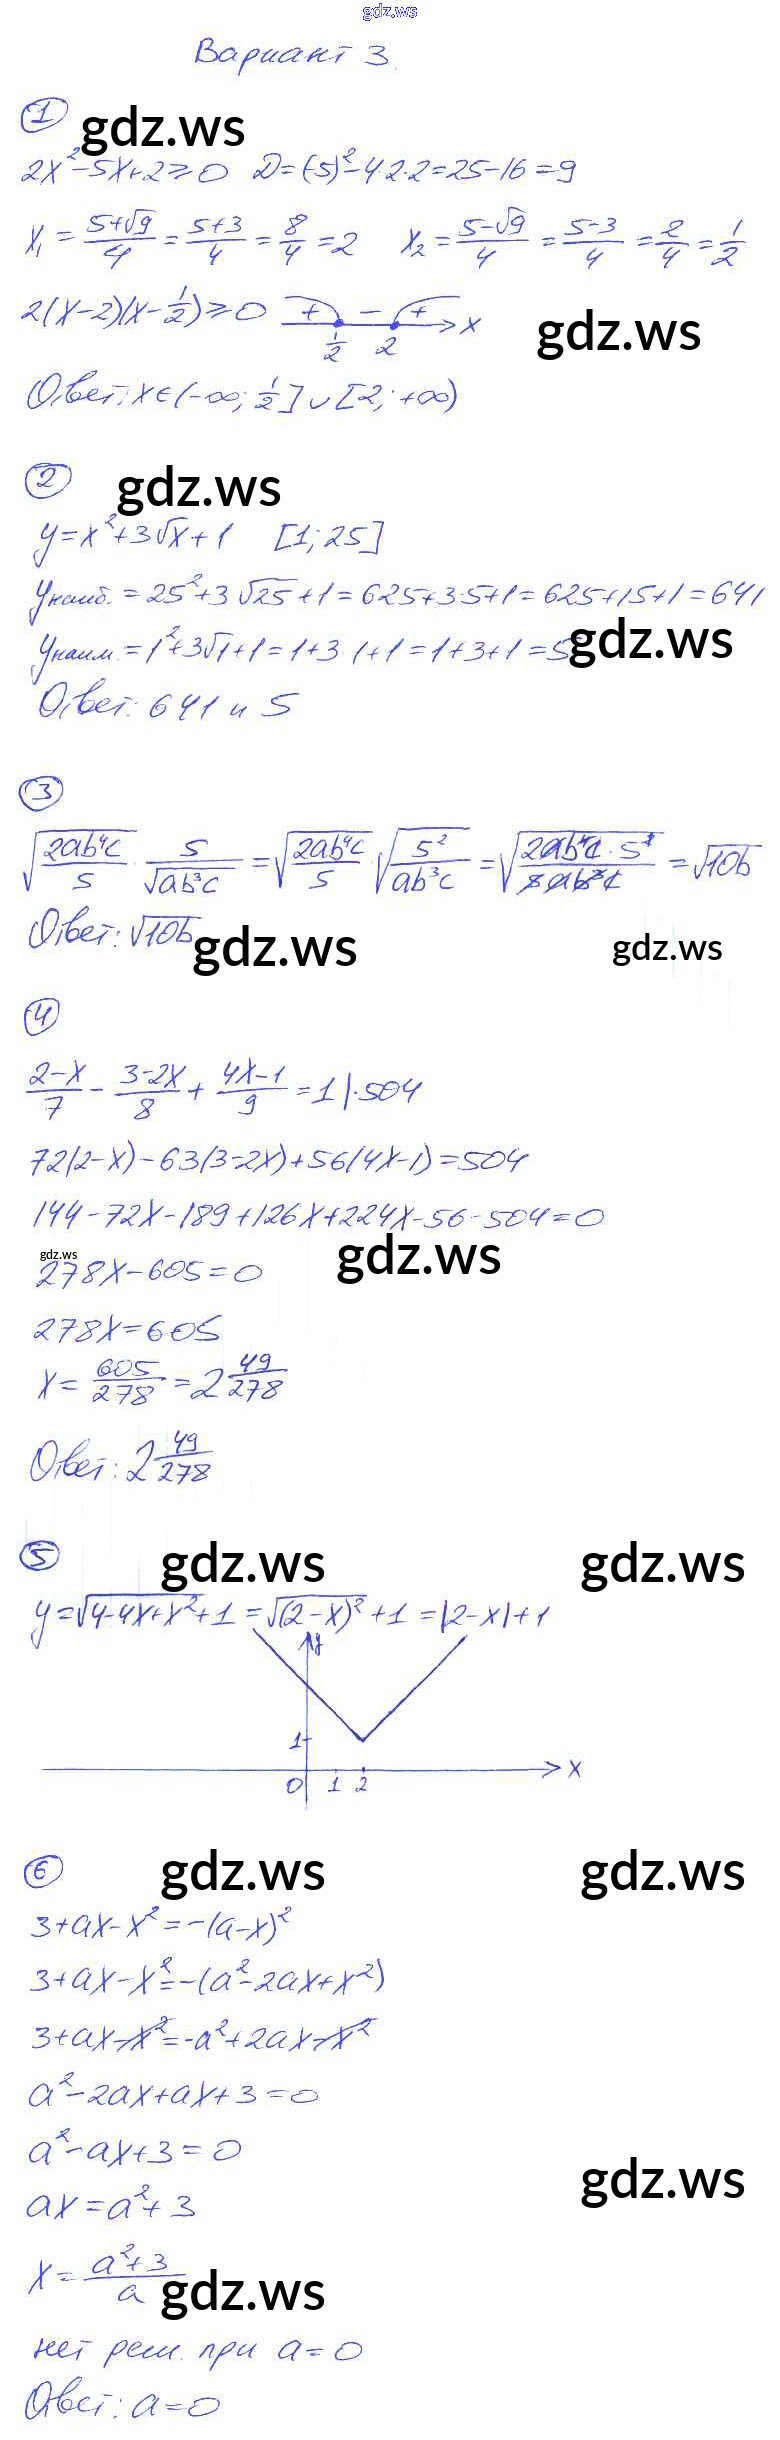 gdz.ws
Вариант 3.
1
gdz.ws
2x²-5x+2≥0 D=(-5)²-4·2·2=25-16=9
x₁ = (5+√9)/4 = (5+3)/4 = 8/4 = 2 x₂ = (5-√9)/4 = (5-3)/4 = 2/4 = 1/2
2(x-2)(x-1/2)≥0 + - + x
gdz.ws
1/2 2
Ответ: x∈(-∞; 1/2]∪[2; +∞)
2
gdz.ws
y=x²+3√x+1 [1; 25]
yнаиб. = 25²+3√25+1=625+3·5+1=625+15+1=641
yнаим. = 1²+3√1+1=1+3·1+1=1+3+1=5
gdz.ws
Ответ: 641 и 5
3
√(2ab⁴c/5) · 5/√(ab³c) = √(2ab⁴c/5) · √(5²/(ab³c)) = √(2ab⁴c·5²/(5ab³c)) = √10b
Ответ: √10b
gdz.ws gdz.ws
4
(2-x)/7 - (3-2x)/8 + (4x-1)/9 = 1 |·504
72(2-x)-63(3-2x)+56(4x-1)=504
144-72x-189+126x+224x-56-504=0
gdz.ws gdz.ws
278x-605=0
278x=605
x = 605/278 = 2 49/278
Ответ: 2 49/278
5
gdz.ws gdz.ws
y=√(4-4x+x²)+1=√((2-x)²)+1=|2-x|+1
y
1
0 1 2 x
6
gdz.ws gdz.ws
3+ax-x²=-(a-x)²
3+ax-x²=-(a²-2ax+x²)
3+ax-x²=-a²+2ax-x²
a²-2ax+ax+3=0
a²-ax+3=0
gdz.ws
ax=a²+3
x = (a²+3)/a
gdz.ws
нет реш. при a=0
Ответ: a=0